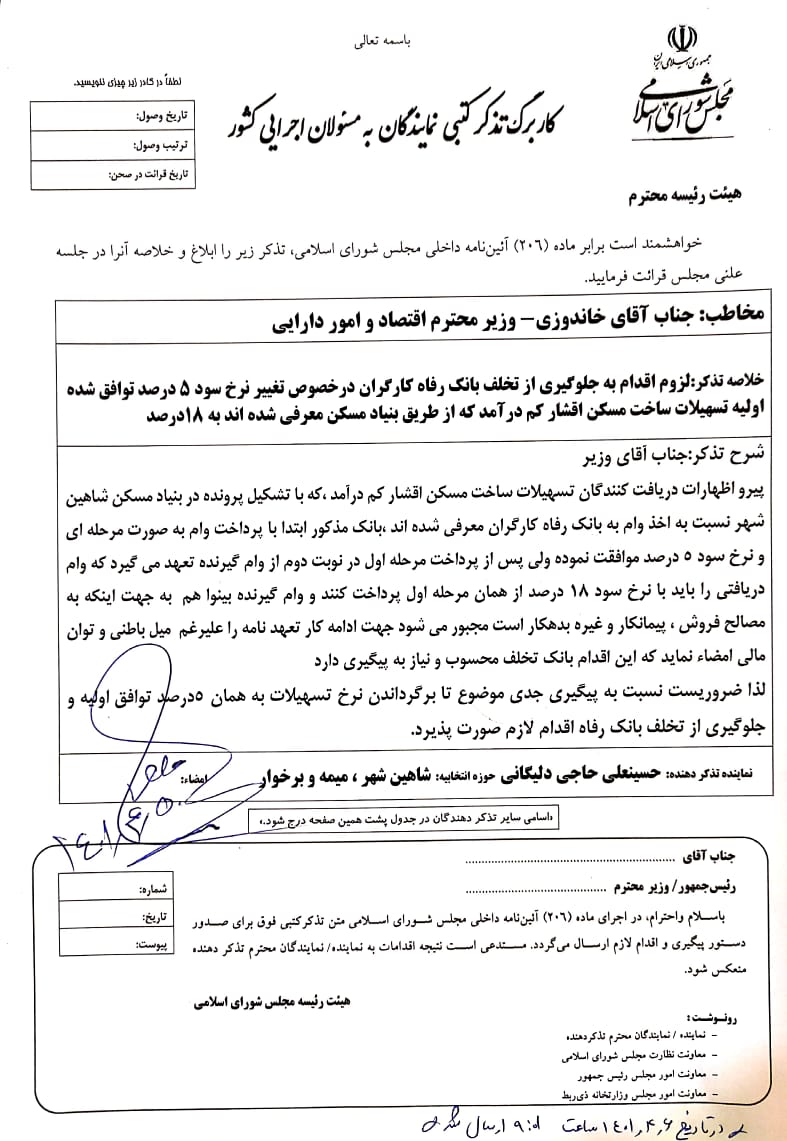 باسمه تعالی
جمهوری اسلامی ایران
مجلس شورای اسلامی
لطفاً در کادر زیر چیزی ننویسید.
تاریخ وصول:
ترتیب وصول:
تاریخ قرائت در صحن:
کاربرگ تذکر کتبی نمایندگان به مسئولان اجرایی کشور
هیئت رئیسه محترم
خواهشمند است برابر ماده (۲۰۶) آئین‌نامه داخلی مجلس شورای اسلامی، تذکر زیر را ابلاغ و خلاصه آنرا در جلسه
علنی مجلس قرائت فرمایید.
مخاطب: جناب آقای خاندوزی– وزیر محترم اقتصاد و امور دارایی
خلاصه تذکر:لزوم اقدام به جلوگیری از تخلف بانک رفاه کارگران درخصوص تغییر نرخ سود ۵ درصد توافق شده
اولیه تسهیلات ساخت مسکن اقشار کم درآمد که از طریق بنیاد مسکن معرفی شده اند به ۱۸درصد
شرح تذکر:جناب آقای وزیر
پیرو اظهارات دریافت کنندگان تسهیلات ساخت مسکن اقشار کم درآمد ،که با تشکیل پرونده در بنیاد مسکن شاهین
شهر نسبت به اخذ وام به بانک رفاه کارگران معرفی شده اند ،بانک مذکور ابتدا با پرداخت وام به صورت مرحله ای
و نرخ سود ۵ درصد موافقت نموده ولی پس از پرداخت مرحله اول در نوبت دوم از وام گیرنده تعهد می گیرد که وام
دریافتی را باید با نرخ سود ۱۸ درصد از همان مرحله اول پرداخت کنند و وام گیرنده بینوا هم به جهت اینکه به
مصالح فروش ، پیمانکار و غیره بدهکار است مجبور می شود جهت ادامه کار تعهد نامه را علیرغم میل باطنی و توان
مالی امضاء نماید که این اقدام بانک تخلف محسوب و نیاز به پیگیری دارد
لذا ضروریست نسبت به پیگیری جدی موضوع تا برگرداندن نرخ تسهیلات به همان ۵درصد توافق اولیه و
جلوگیری از تخلف بانک رفاه اقدام لازم صورت پذیرد.
نماینده تذکر دهنده: حسینعلی حاجی دلیگانی حوزه انتخابیه: شاهین شهر ، میمه و برخوار امضاء:
۱۴۰۱/۴/۵
«اسامی سایر تذکر دهندگان در جدول پشت همین صفحه درج شود.»
جناب آقای ................................................
رئیس‌جمهور/ وزیر محترم ................................
شماره:
تاریخ:
پیوست:
باسلام واحترام، در اجرای ماده (۲۰۶) آئین‌نامه داخلی مجلس شورای اسلامی متن تذکرکتبی فوق برای صدور
دستور پیگیری و اقدام لازم ارسال می‌گردد. مستدعی است نتیجه اقدامات به نماینده/ نمایندگان محترم تذکر دهنده
منعکس شود.
هیئت رئیسه مجلس شورای اسلامی
رونوشت:
– نماینده / نمایندگان محترم تذکردهنده
– معاونت نظارت مجلس شورای اسلامی
– معاونت امور مجلس رئیس جمهور
– معاونت امور مجلس وزارتخانه ذی‌ربط
در تاریخ ۱۴۰۱،۴،۶ ساعت ۹:۵ ارسال